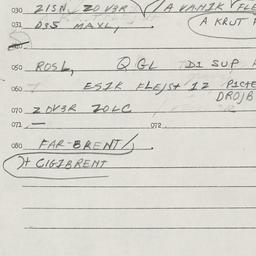 030 ZISN ZOV3R / A VANIK FLE
031 D35 MAXL,
A KRUT
050 ROSL, QGL DI SUP
060 ESIK FLE/St 12 PICTE
DRO/B
070 ZOV3R ZOLC
071 — 072
080 FAR-BRENT/
+ CIGIBRENT